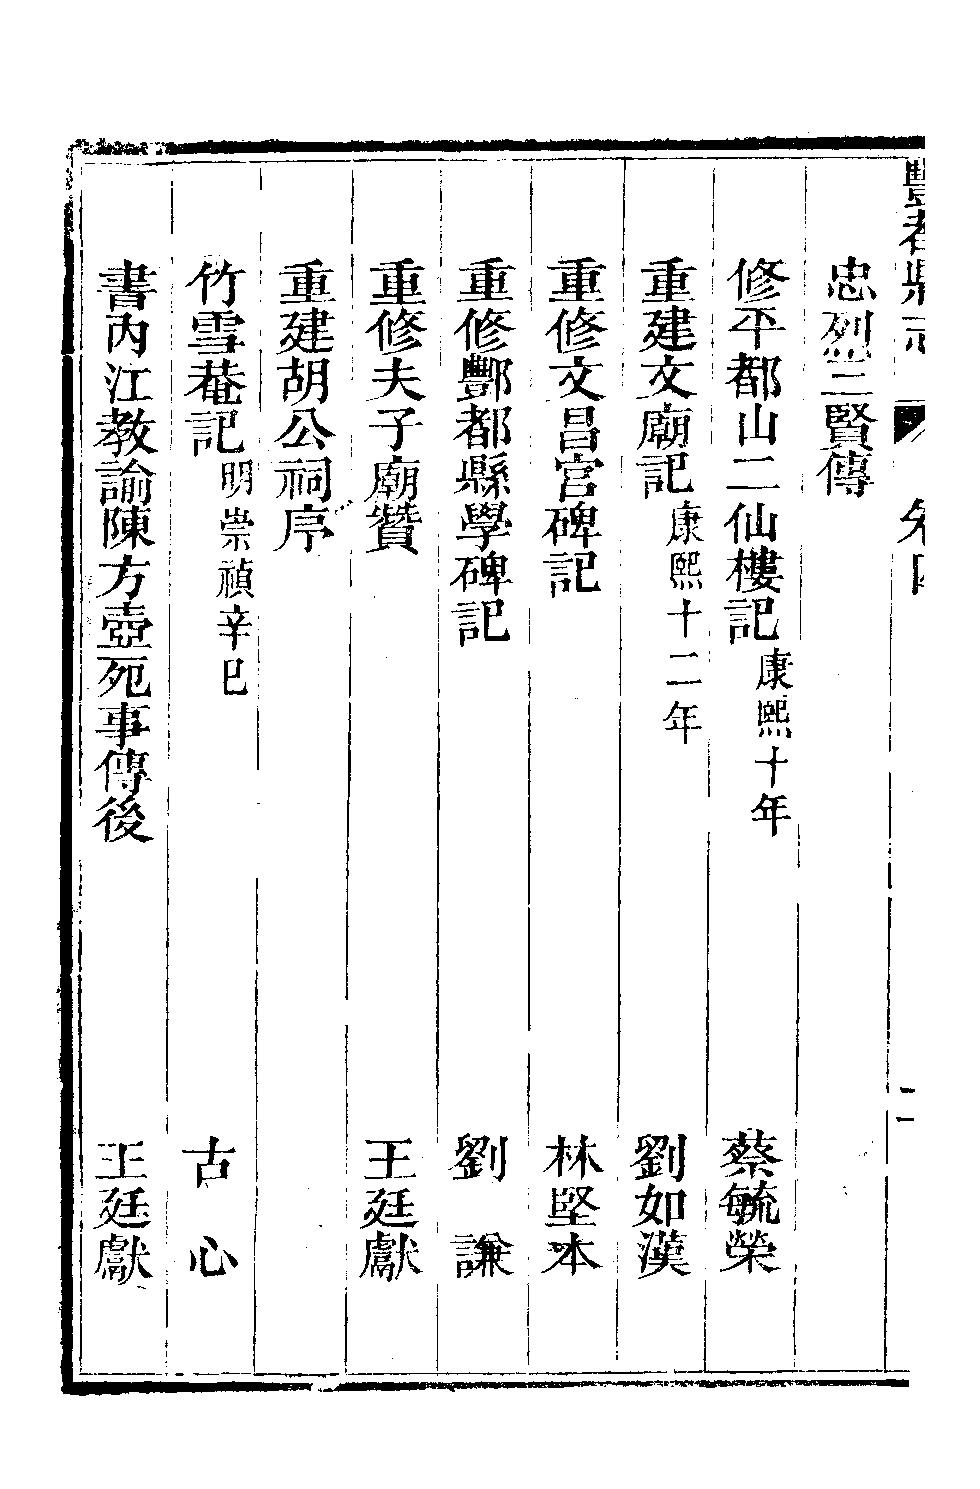 豐都縣志 卷四 二
忠烈三賢傳
修平都山二仙樓記 康熙十年 蔡毓榮
重建文廟記 康熙十二年 劉如漢
重修文昌宮碑記 林堅本
重修酆都縣學碑記 劉謙
重修夫子廟贊 王廷獻
重建胡公祠序
竹雪菴記 明崇禎辛巳 古心
書內江教諭陳方壺死事傳後 王廷獻